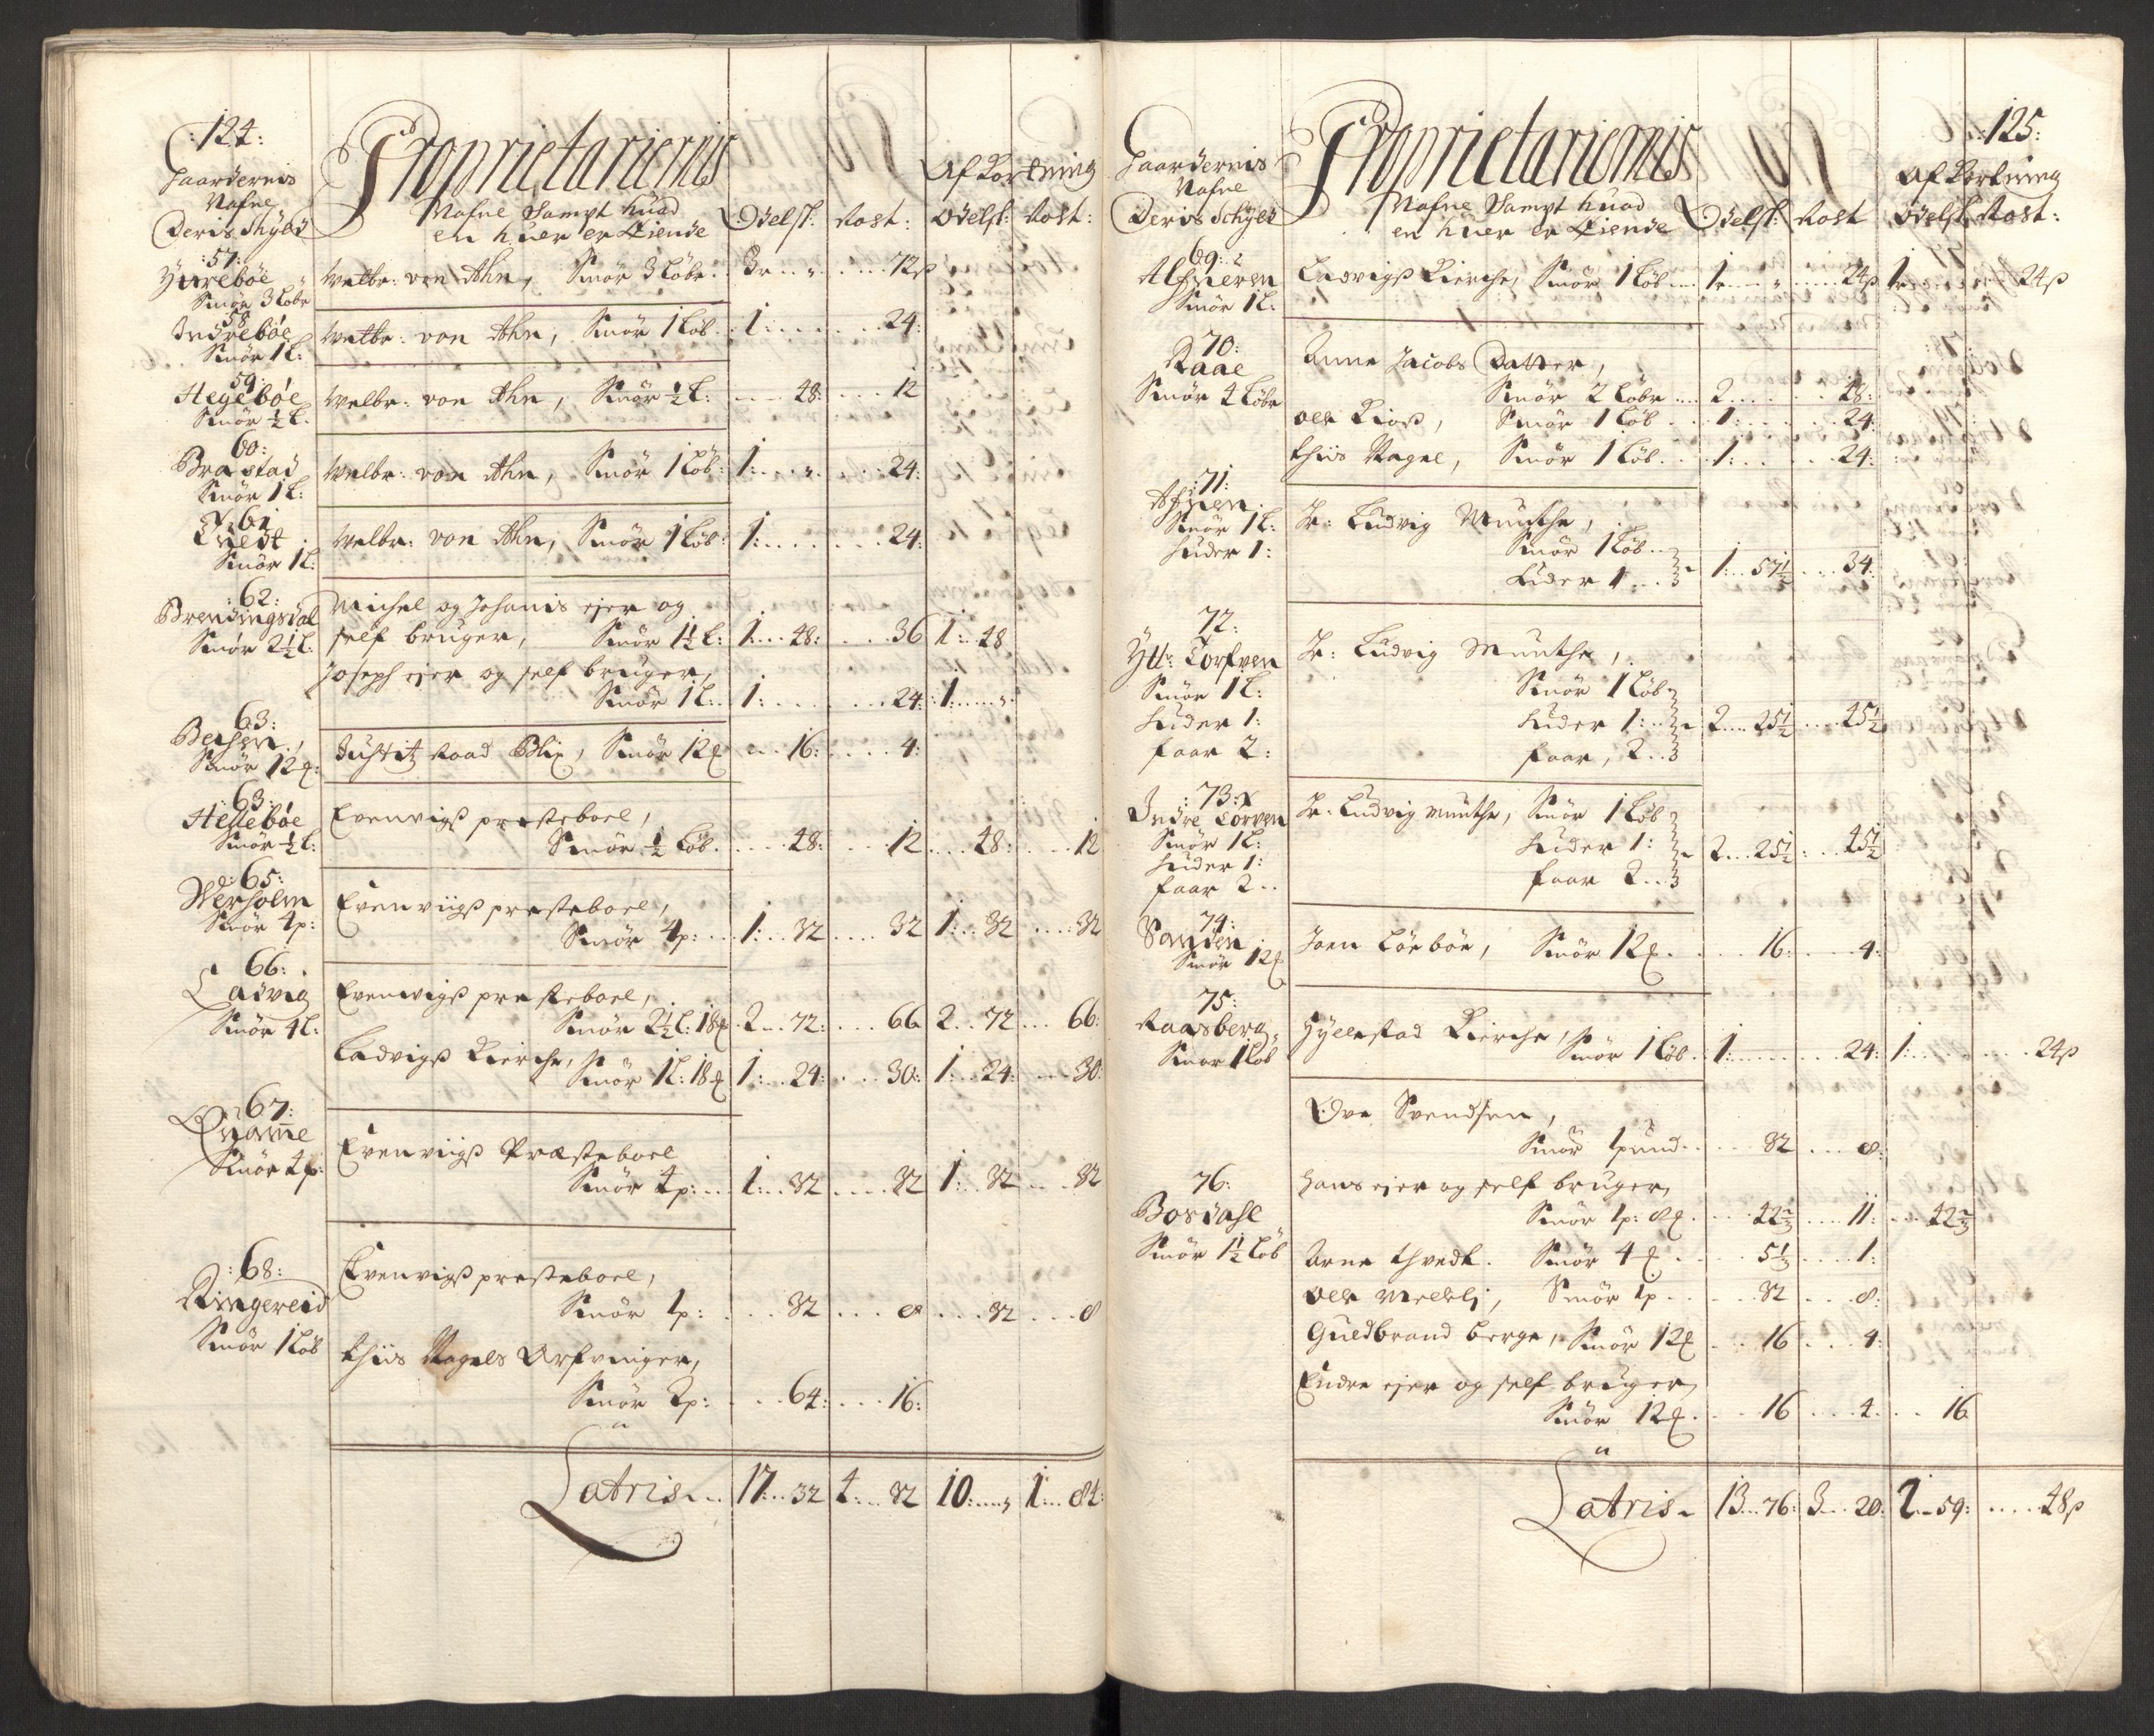 :124:
Gaardernis
Nafne
Deris Skyld
Proprietariernis
Nafne Sampt huad
en huer er Eiende
Odelsk:
Rost:
Afkortning
Odelsk:
Rost:
:57:
Yttrebøe
Smør 3 Løbe
Welbr: von Ahn, Smør 3 Løbe .. 3r .. „ .... 72ß
58
Indrebøe
Smør 1 L:
Welbr: von Ahn, Smør 1 Løb . 1: ...... 24:
59:
Hegebøe
Smør ½ L.
Welbr: von Ahn, Smør ½ L: .... 48: ... 12
60:
Brastad
Smør 1 L:
Welbr: von Ahn, Smør 1 Løb: 1: ... „ ... 24:
61
Tuedt
Smør 1 L:
Welbr: von Ahn, Smør 1 Løb: 1: ....... 24:
:62:
Brendingsdal
Smør 2½ L:
Michel og Johanis ejer og
self bruger, Smør 1½ L: 1: .. 48: .... 36 1: .. 48
Joseph ejer og self bruger,
Smør 1 L: . 1: ....... 24: 1: .... „
63:
Bersen,
Smør 12 ℔:
Justitz Raad Blix, Smør 12 ℔ ... 16: .... 4:
:63:
Hellebøe
Smør ½ L:
Evenvigß præsteboel,
Smør ½ Løb. .... 48: ... 12 ... 48: .... 12
:65:
Werholm
Smør 4 p:
Evenviigß præsteboel,
Smør 4 p: ... 1: .. 32 .... 32 1: .. 32 .... 32
66:
Ladvig
Smør 4 L:
Evenwigß præsteboel,
Smør 2½ L: 18 ℔ . 2 .. 72: ... 66 2 .. 72 ... 66:
Ladvigß Kierche, Smør 1 L: 18 ℔ 1: .. 24: ... 30: 1: .. 24: ... 30:
67:
Quamme
Smør 4 p:
Evenviigß Præsteboel
Smør 4 p: ... 1: .. 32 .... 32 1: .. 32 ... 32
:68:
Ringereid
Smør 1 Løb
Evenvigß præsteboel,
Smør 1 p: .... 32 ... 8 ... 32 ... 8
Thiis Nagels Arfvinger,
Smør 2 p: ... 64: ... 16:
Latris ... 17: .. 32 4 ... 32 10: .... „ 1: .. 84:
:125:
Gaardernis
Nafne
Deris Schyld
Proprietariernis
Nafne Sampt huad
en huer er Eiende
Odelsk:
Rost
Afkortning
Odelsk:
Rost:
69:
Alfnieren
Smør 1 L:
Ladvigß Kierche, Smør 1 Løb ... 1r ... „ .... 24ß 1r ...... 24ß
70:
Raae
Smør 4 Løbe
Anne Jacobs Datter,
Smør 2 Løbe ... 2 ..... 48:
Ole Kioß, Smør 1 Løb .. 1: ..... 24:
Thiis Nagel, Smør 1 Løb .. 1: .... 24:
:71:
Smør 1 L:
Huder 1:
Hr: Ludvig Munthe,
Smør 1 Løb ..
Huder 1 ... 1: .. 57½ ... 34:
72:
Ytt: Torfven
Smør 1 L:
Huder 1:
Faar 2:
Hr: Ludvig Munthe,
Smør 1 Løb
Huder 1: .. 2 ... 25½ .... 45½
Faar, 2 ..
:73:
Indre Torven
Smør 1 L:
Huder 1:
Faar 2 ..
Hr: Ludvig Munthe, Smør 1 Løb
Huder 1: 2 ... 25½ .. 45½
Faar 2 ...
74:
Sanden
Smør 12 ℔
Joen Løebøe, Smør 12 ℔ .... 16: .... 4:
75:
Raasberg
Smør 1 Løb
Hyllestad Kierche,
Smør 1 Løb .. 1: ...... 24: 1: ...... 24ß
76:
Bosdahl
Smør 1½ Løb
Ove Svendsen,
Smør 1 pund .... 32 ... 8:
Hans ejer og self bruger,
Smør 1 p: 8 ℔ .... 42⅔ .... 11: ... 42⅔
Arne Thvedt. Smør 4 ℔ .... 5⅓ .... 1:
Ole Melli, Smør 1 p .... 32 ... 8:
Guldbrand Berge, Smør 12 ℔ ... 16 ... 4:
Endre ejer og self bruger,
Smør 12 ℔ .... 16 .... 4. .. 16
Latris . 13 .. 76: 3 ... 20: 2 .. 59: .... 48ß